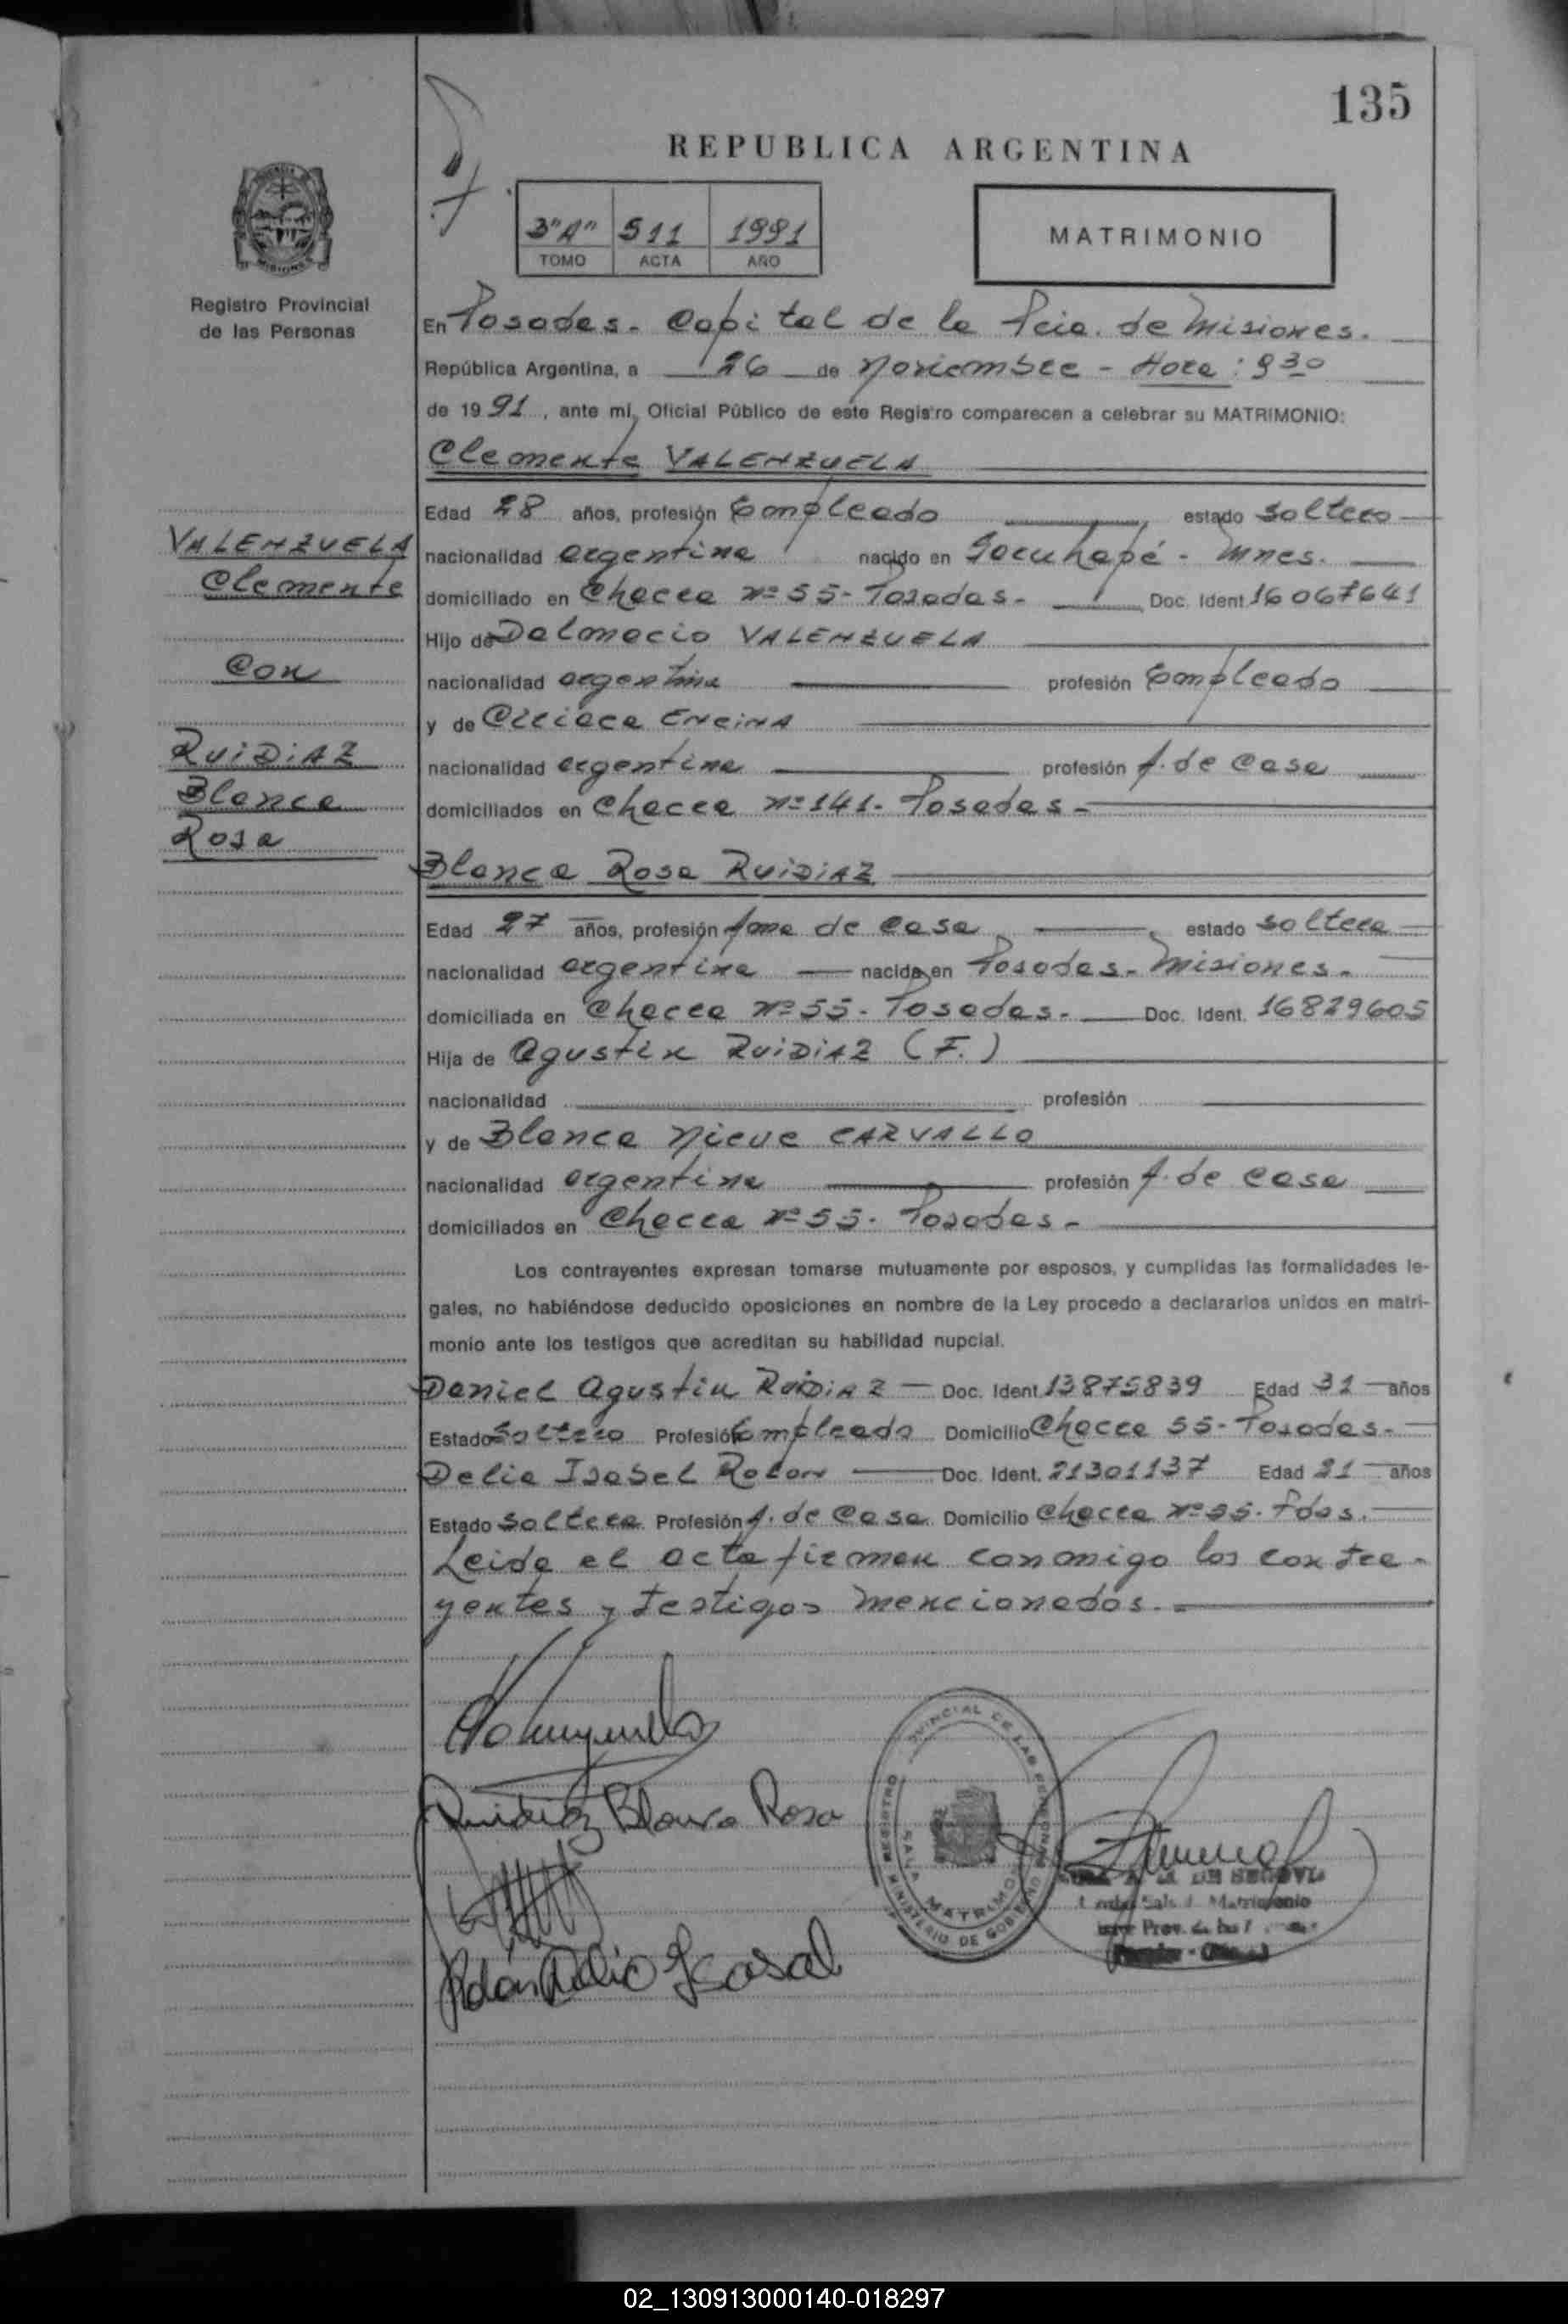 135
REPUBLICA ARGENTINA
3"A" 511 1991
TOMO ACTA AÑO
MATRIMONIO
Registro Provincial
de las Personas
En Posadas- Capital de la Pcia. de Misiones.
República Argentina, a 26 de Noviembre - Hora: 9 30
de 1991, ante mí, Oficial Público de este Registro comparecen a celebrar su MATRIMONIO:
Clemente VALENZUELA
Edad 28 años, profesión Empleado estado soltero
VALENZUELA
Clemente
con
RUIDIAZ
Blanca
Rosa
nacionalidad argentina nacido en Garuhapé - Mnes.
domiciliado en Chacra Nº 55- Posadas- Doc. Ident. 16067641
Hijo de Dalmacio VALENZUELA
nacionalidad argentina profesión Empleado
y de Ciriaca ENCINA
nacionalidad argentina profesión A. de Casa
domiciliados en Chacra Nº 141- Posadas-
Blanca Rosa RUIDIAZ
Edad 27 años, profesión Ama de Casa estado soltera
nacionalidad argentina nacida en Posadas- Misiones.
domiciliada en Chacra Nº 55- Posadas- Doc. Ident. 16829605
Hija de Agustin RUIDIAZ (F.)
nacionalidad profesión
y de Blanca Nieve CARVALLO
nacionalidad argentina profesión A. de Casa
domiciliados en Chacra Nº 55- Posadas-
Los contrayentes expresan tomarse mutuamente por esposos, y cumplidas las formalidades le-
gales, no habiéndose deducido oposiciones en nombre de la Ley procedo a declararlos unidos en matri-
monio ante los testigos que acreditan su habilidad nupcial.
Daniel Agustin RUIDIAZ - Doc. Ident. 13875839 Edad 31 años
Estado Soltero Profesión Empleado Domicilio Chacra 55- Posadas-
Delia Isabel Rolon Doc. Ident. 21301137 Edad 21 años
Estado soltera Profesión A. de Casa Domicilio Chacra Nº 55- Pdas.
Leida el acta firman conmigo los contra-
yentes y testigos mencionados.-
Ruidiaz Blanca Rosa
Rolón Delia Isabel
REGISTRO PROVINCIAL DE LAS PERSONAS
SALA MATRIMONIO
MINISTERIO DE GOBIERNO
DE SEGOVIA
Matrimonio
02_130913000140-018297